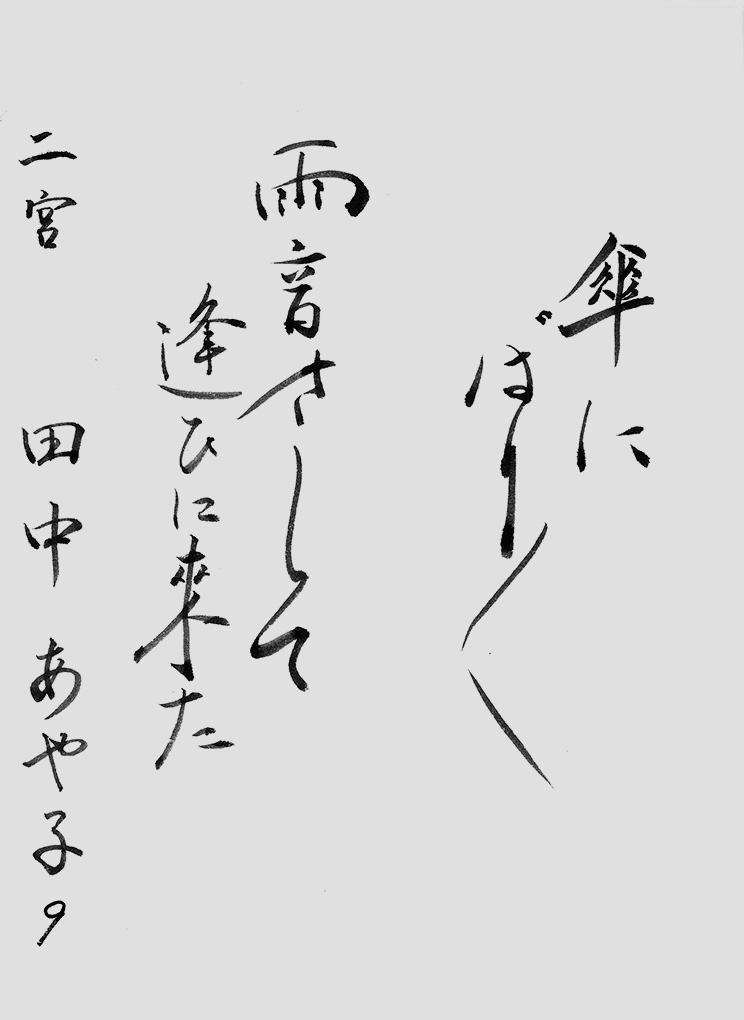 傘に
ばり〱
雨音さして
逢ひに来た
二宮 田中 あや子 9